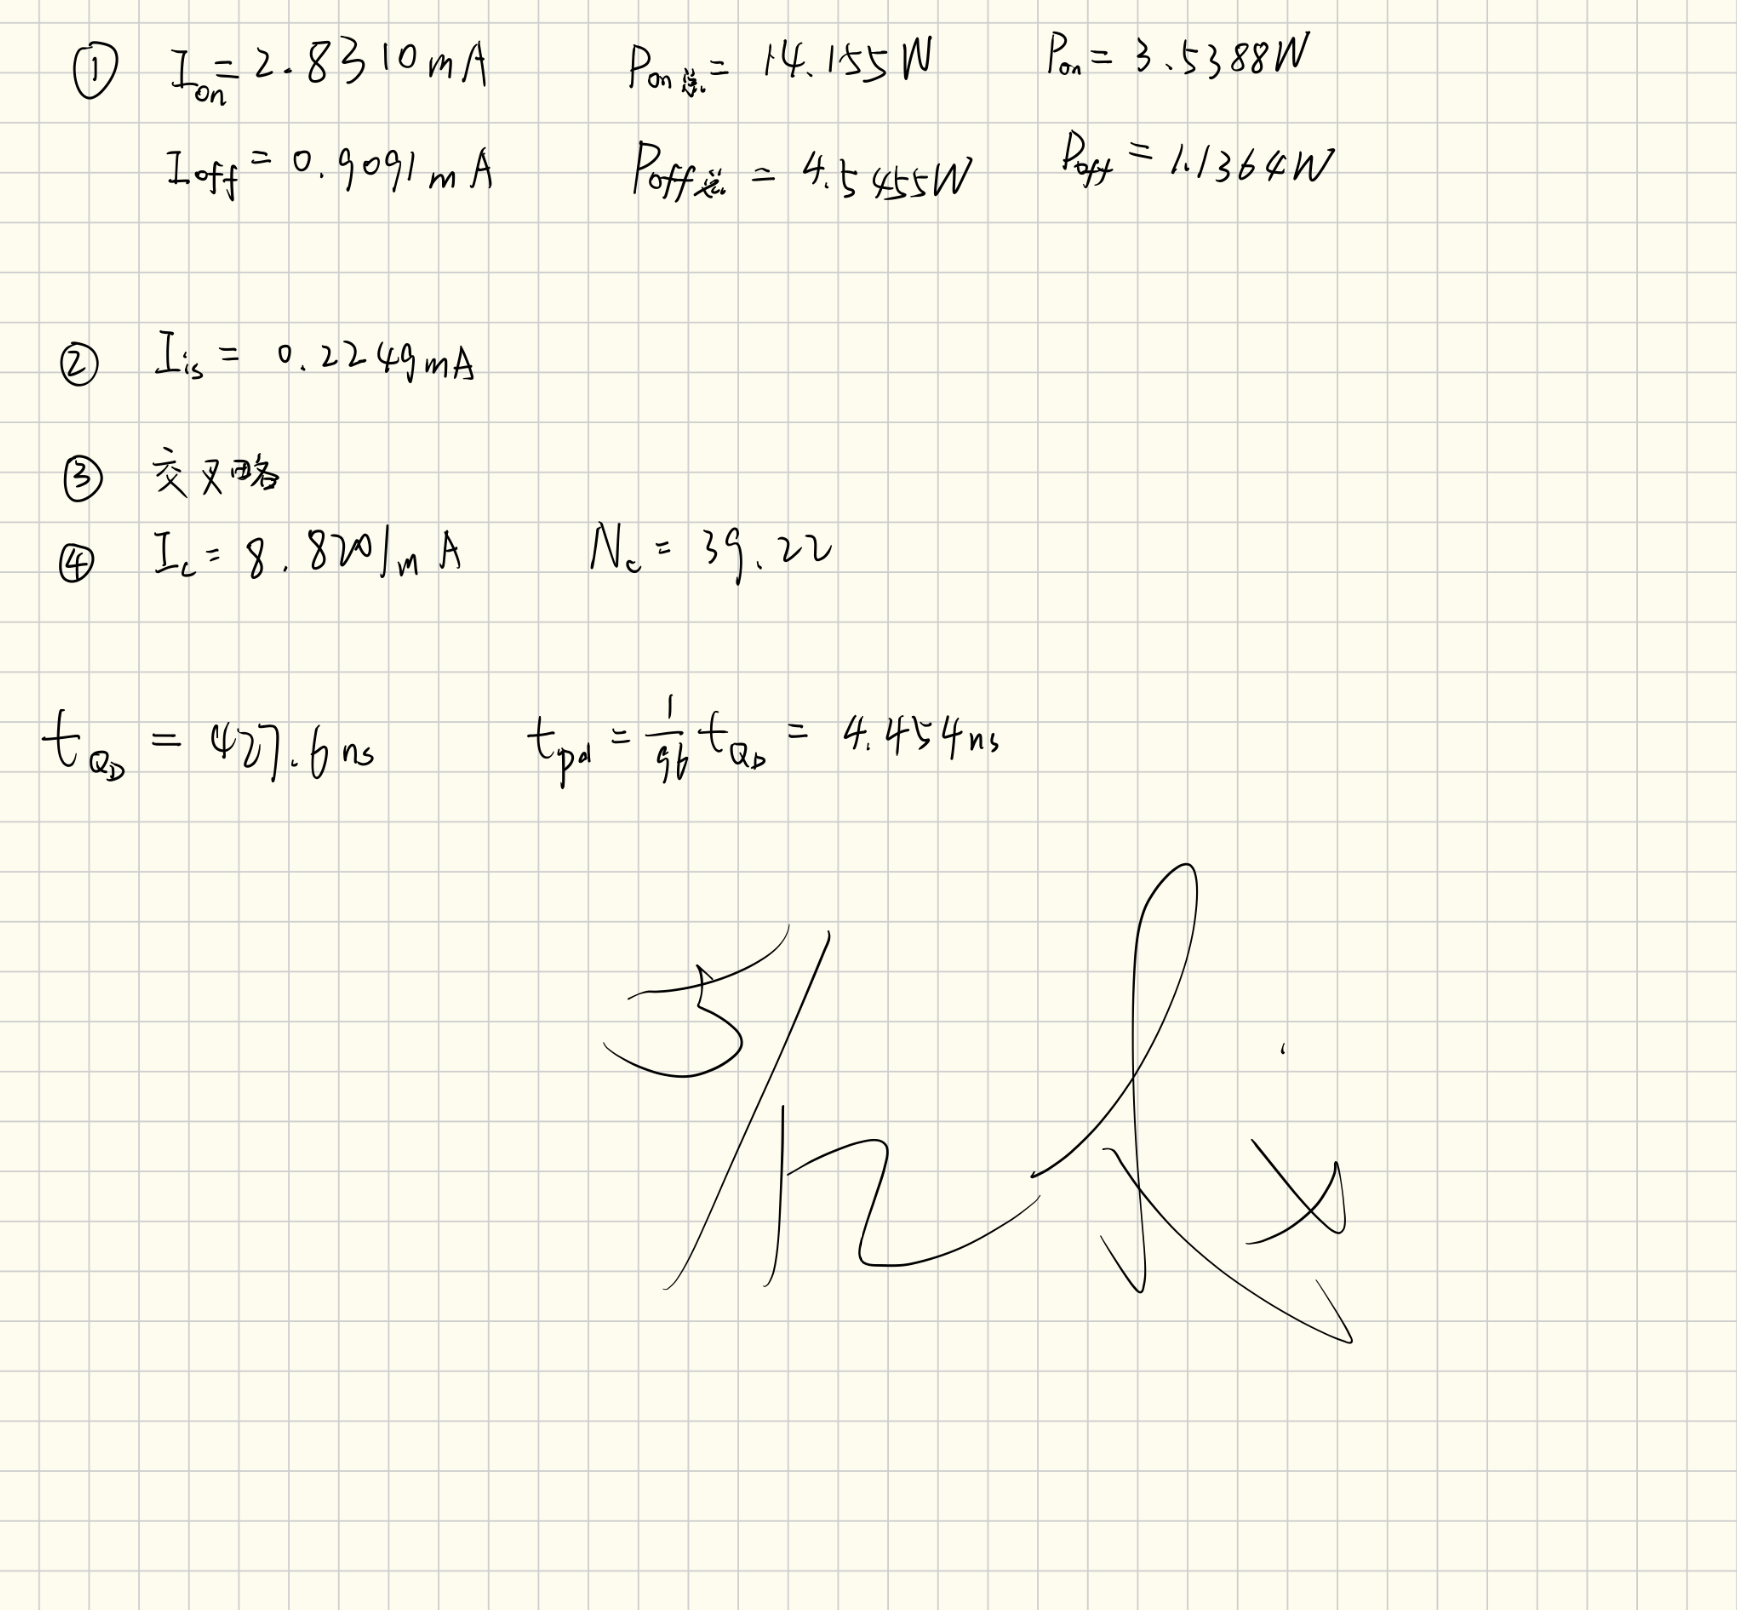 ① I_on = 2.8310mA P_on总 = 14.155W P_on = 3.5388W
I_off = 0.9091mA P_off总 = 4.5455W P_off = 1.1364W
② I_is = 0.2249mA
③ 交叉略
④ I_c = 8.8201mA N_c = 39.22
t_QD = 427.6ns t_pd = 1/96 t_QD = 4.454ns